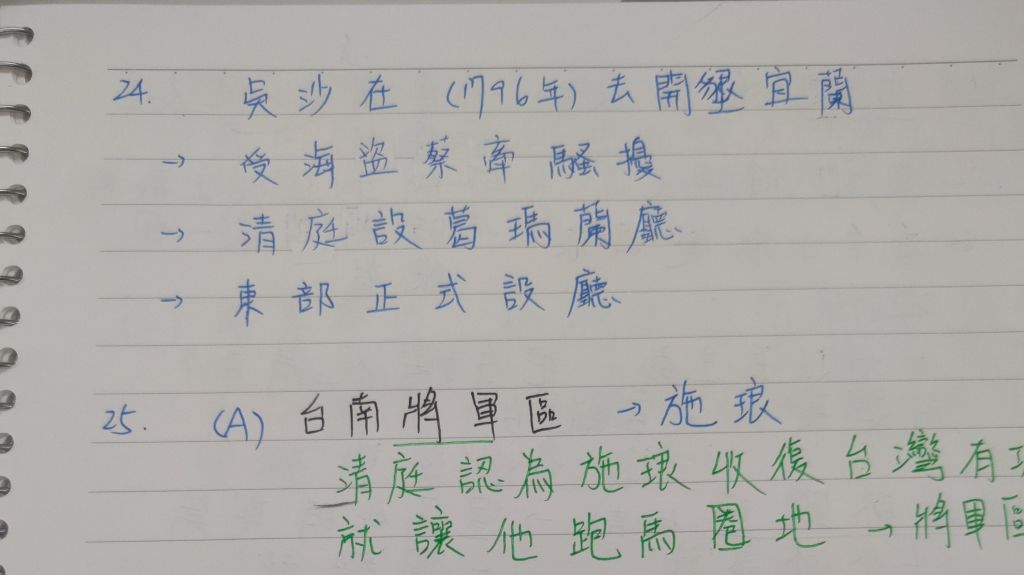 24. 吳沙在 (1796年) 去開墾宜蘭
→ 受海盜蔡牽騷擾
→ 清庭設葛瑪蘭廳
→ 東部正式設廳
25. (A) 台南將軍區 → 施琅
清庭認為施琅收復台灣有
就讓他跑馬圈地 → 將軍區